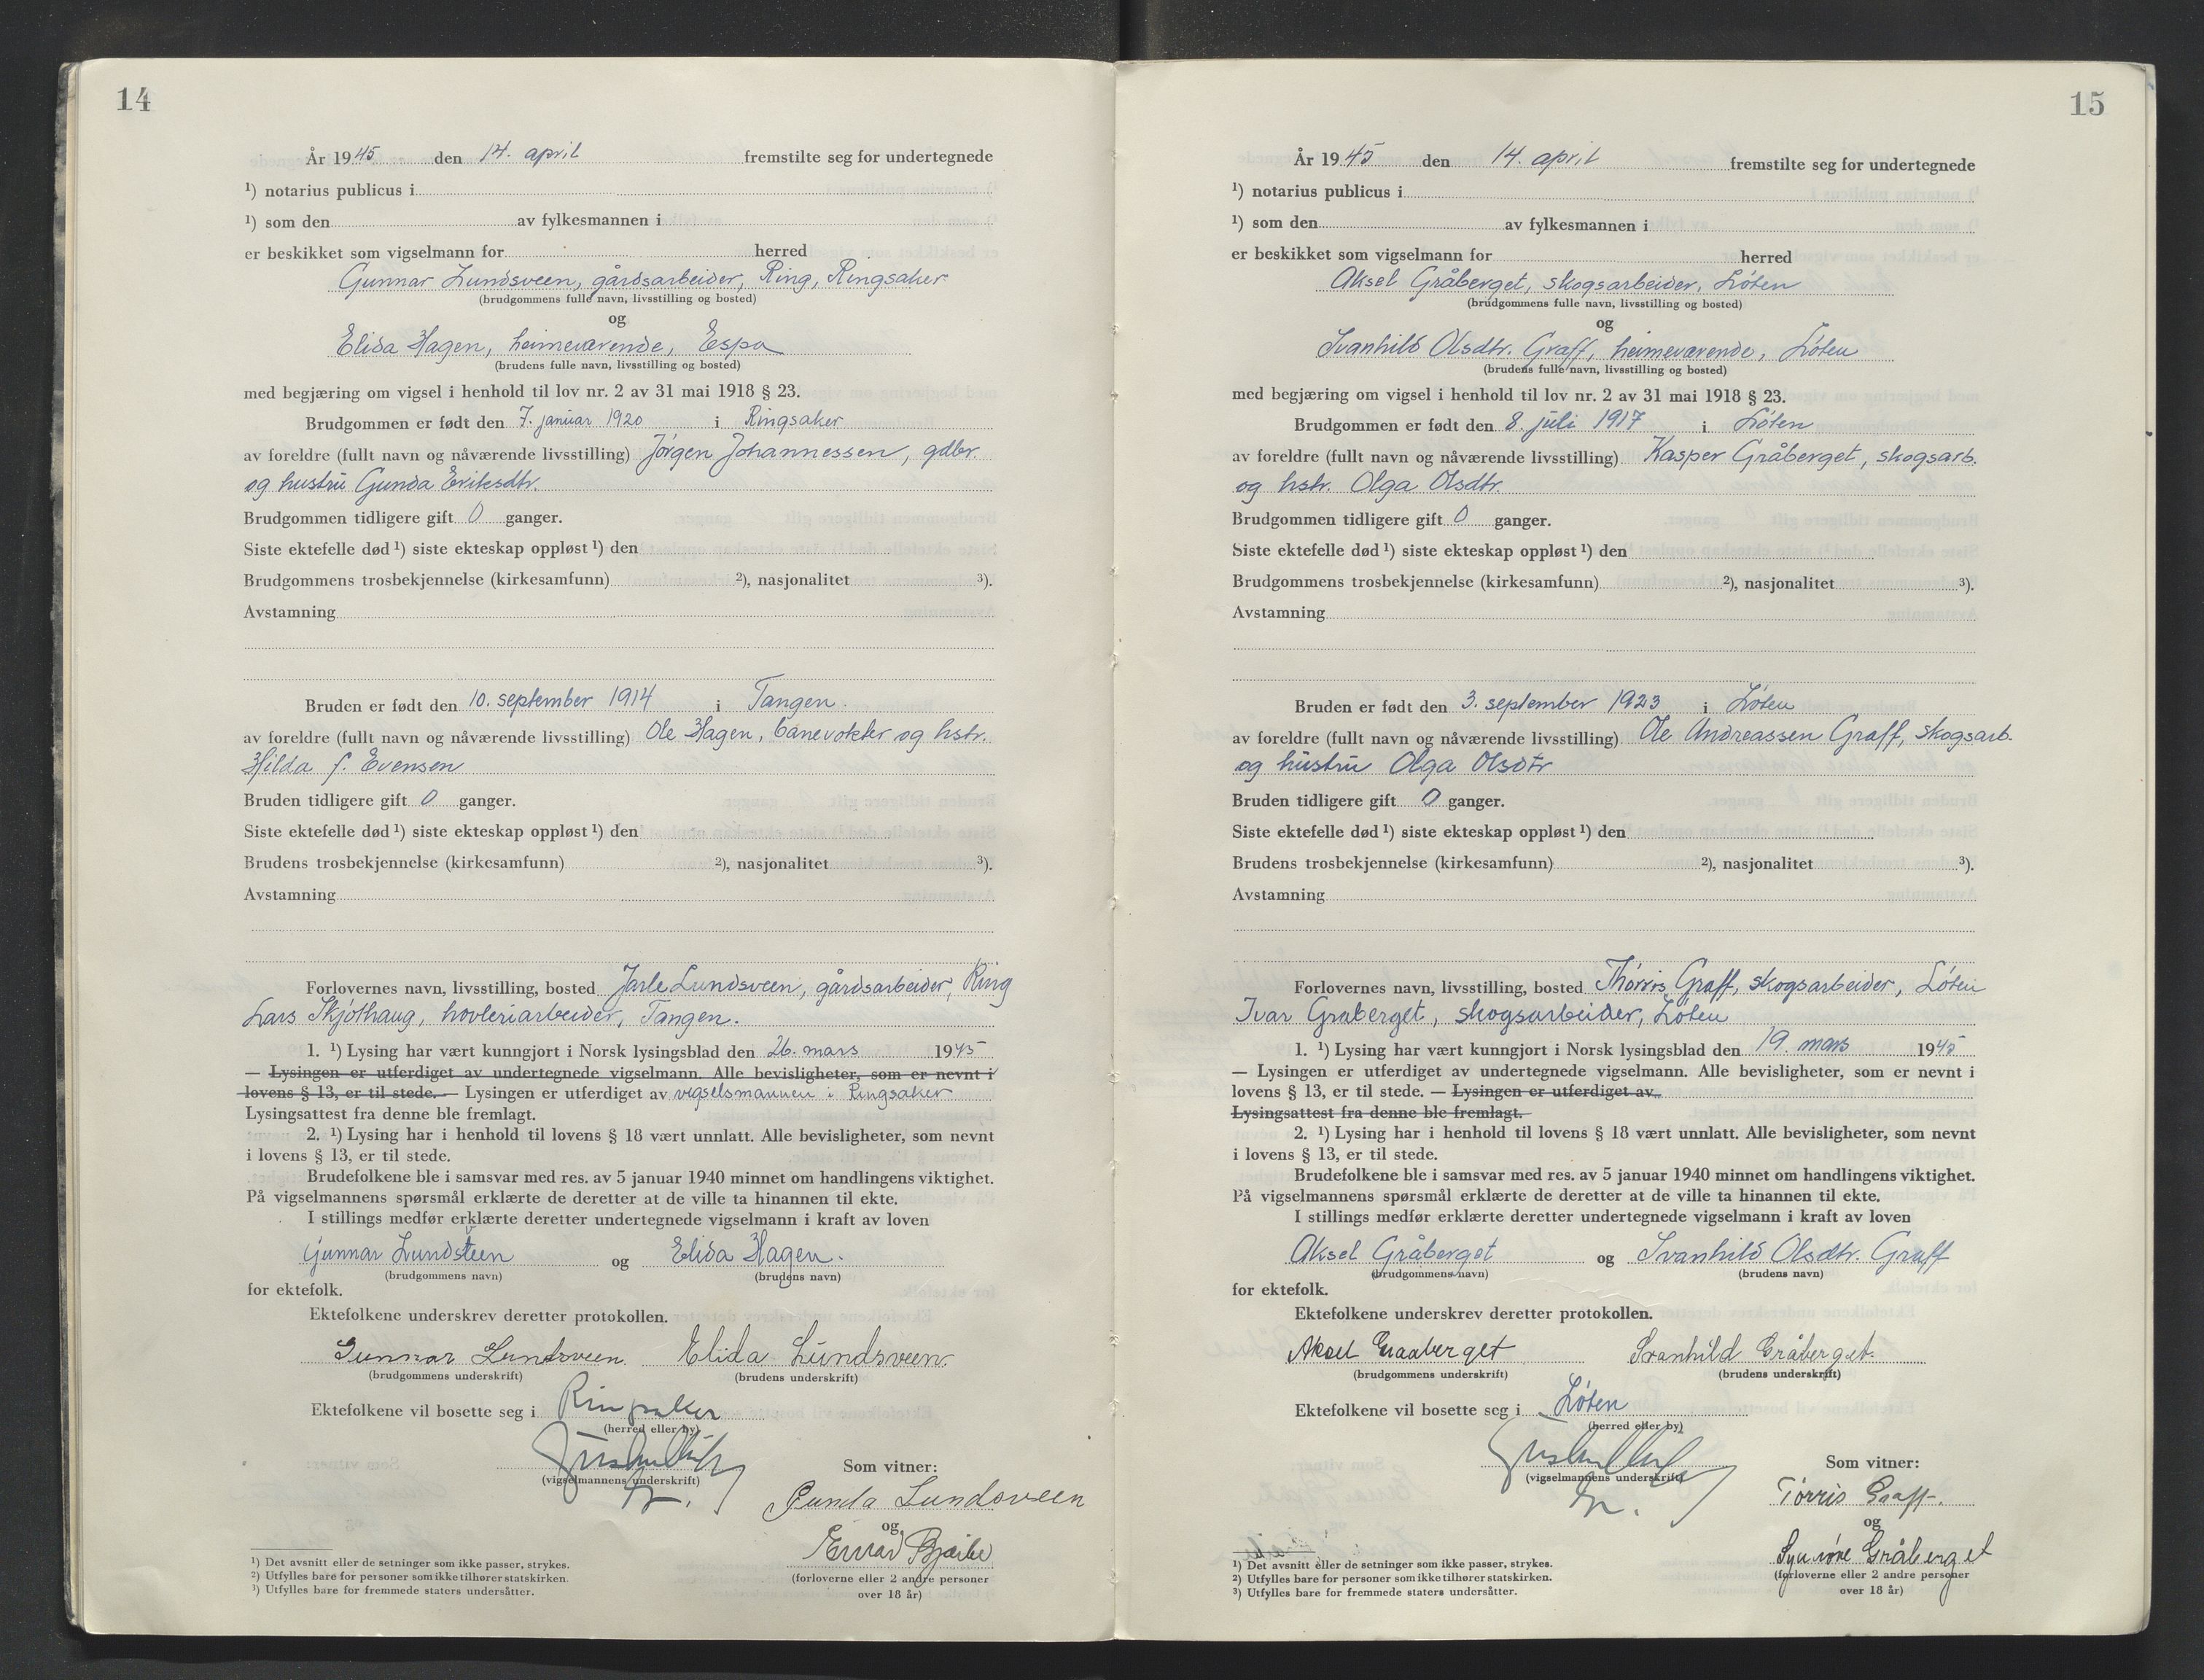 14
År 1945 den 14. april fremstilte seg for undertegnede
¹) notarius publicus i
¹) som den av fylkesmannen i
er beskikket som vigselmann for herred
Gunnar Lundsveen, gårdsarbeider, Ring, Ringsaker
(brudgommens fulle navn, livsstilling og bosted)
og
Elida Hagen, heimeværende, Espa
(brudens fulle navn, livsstilling og bosted)
med begjæring om vigsel i henhold til lov nr. 2 av 31 mai 1918 § 23.
Brudgommen er født den 7. januar 1920 i Ringsaker
av foreldre (fullt navn og nåværende livsstilling) Jørgen Johannessen, gdbr.
og hustru Gunda Eriksdtr.
Brudgommen tidligere gift 0 ganger.
Siste ektefelle død ¹) siste ekteskap oppløst ¹) den
Brudgommens trosbekjennelse (kirkesamfunn) ²), nasjonalitet ³).
Avstamning
Bruden er født den 10. september 1914 i Tangen.
av foreldre (fullt navn og nåværende livsstilling) Ole Hagen, banevokter og hstr.
Hilda f. Evensen
Bruden tidligere gift 0 ganger.
Siste ektefelle død ¹) siste ekteskap oppløst ¹) den
Brudens trosbekjennelse (kirkesamfunn) ²), nasjonalitet ³).
Avstamning
Forlovernes navn, livsstilling, bosted Jarle Lundsveen, gårdsarbeider, Ring
Lars Skjøthaug, høvleriarbeider, Tangen.
1. ¹) Lysing har vært kunngjort i Norsk lysingsblad den 26. mars 1945
— Lysingen er utferdiget av undertegnede vigselmann. Alle bevisligheter, som er nevnt i
lovens § 13, er til stede. — Lysingen er utferdiget av vigselsmannen i Ringsaker
Lysingsattest fra denne ble fremlagt.
2. ¹) Lysing har i henhold til lovens § 18 vært unnlatt. Alle bevisligheter, som nevnt
i lovens § 13, er til stede.
Brudefolkene ble i samsvar med res. av 5 januar 1940 minnet om handlingens viktighet.
På vigselmannens spørsmål erklærte de deretter at de ville ta hinannen til ekte.
I stillings medfør erklærte deretter undertegnede vigselmann i kraft av loven
Gunnar Lundsveen og Elida Hagen.
(brudgommens navn) (brudens navn)
for ektefolk.
Ektefolkene underskrev deretter protokollen.
Gunnar Lundsveen. Elida Lundsveen.
(brudgommens underskrift) (brudens underskrift)
Ektefolkene vil bosette seg i Ringsaker
(herred eller by)
(vigselmannens underskrift) Som vitner:
Gunda Lundsveen
og
(forloverne eller 2 andre personer
over 18 år)
¹) Det avsnitt eller de setninger som ikke passer, strykes.
²) Utfylles bare for personer som ikke tilhører statskirken.
³) Utfylles bare for fremmede staters undersåtter.
15
År 1945 den 14. april fremstilte seg for undertegnede
¹) notarius publicus i
¹) som den av fylkesmannen i
er beskikket som vigselmann for herred
Aksel Gråberget, skogsarbeider, Løten
(brudgommens fulle navn, livsstilling og bosted)
og
Svanhild Olsdtr. Graff, heimeværende, Løten
(brudens fulle navn, livsstilling og bosted)
med begjæring om vigsel i henhold til lov nr. 2 av 31 mai 1918 § 23.
Brudgommen er født den 8. juli 1917 i Løten
av foreldre (fullt navn og nåværende livsstilling) Kasper Gråberget, skogsarb.
og hstr. Olga Olsdtr.
Brudgommen tidligere gift 0 ganger.
Siste ektefelle død ¹) siste ekteskap oppløst ¹) den
Brudgommens trosbekjennelse (kirkesamfunn) ²), nasjonalitet ³).
Avstamning
Bruden er født den 3. september 1923 i Løten
av foreldre (fullt navn og nåværende livsstilling) Ole Andreassen Graff, skogsarb.
og hustru Olga Olsdtr
Bruden tidligere gift 0 ganger.
Siste ektefelle død ¹) siste ekteskap oppløst ¹) den
Brudens trosbekjennelse (kirkesamfunn) ²), nasjonalitet ³).
Avstamning
Forlovernes navn, livsstilling, bosted Thørris Graff, skogsarbeider, Løten
Ivar Graberget, skogsarbeider, Løten
1. ¹) Lysing har vært kunngjort i Norsk lysingsblad den 19. mars 1945
— Lysingen er utferdiget av undertegnede vigselmann. Alle bevisligheter, som er nevnt i
lovens § 13, er til stede. — Lysingen er utferdiget av
Lysingsattest fra denne ble fremlagt.
2. ¹) Lysing har i henhold til lovens § 18 vært unnlatt. Alle bevisligheter, som nevnt
i lovens § 13, er til stede.
Brudefolkene ble i samsvar med res. av 5 januar 1940 minnet om handlingens viktighet.
På vigselmannens spørsmål erklærte de deretter at de ville ta hinannen til ekte.
I stillings medfør erklærte deretter undertegnede vigselmann i kraft av loven
Aksel Gråberget og Svanhild Olsdtr. Graff
(brudgommens navn) (brudens navn)
for ektefolk.
Ektefolkene underskrev deretter protokollen.
Aksel Graaberget Svanhild Gråberget.
(brudgommens underskrift) (brudens underskrift)
Ektefolkene vil bosette seg i Løten
(herred eller by)
(vigselmannens underskrift) Som vitner:
Tørris Graff.
og
Synnøve Gråberget
(forloverne eller 2 andre personer
over 18 år)
¹) Det avsnitt eller de setninger som ikke passer, strykes.
²) Utfylles bare for personer som ikke tilhører statskirken.
³) Utfylles bare for fremmede staters undersåtter.